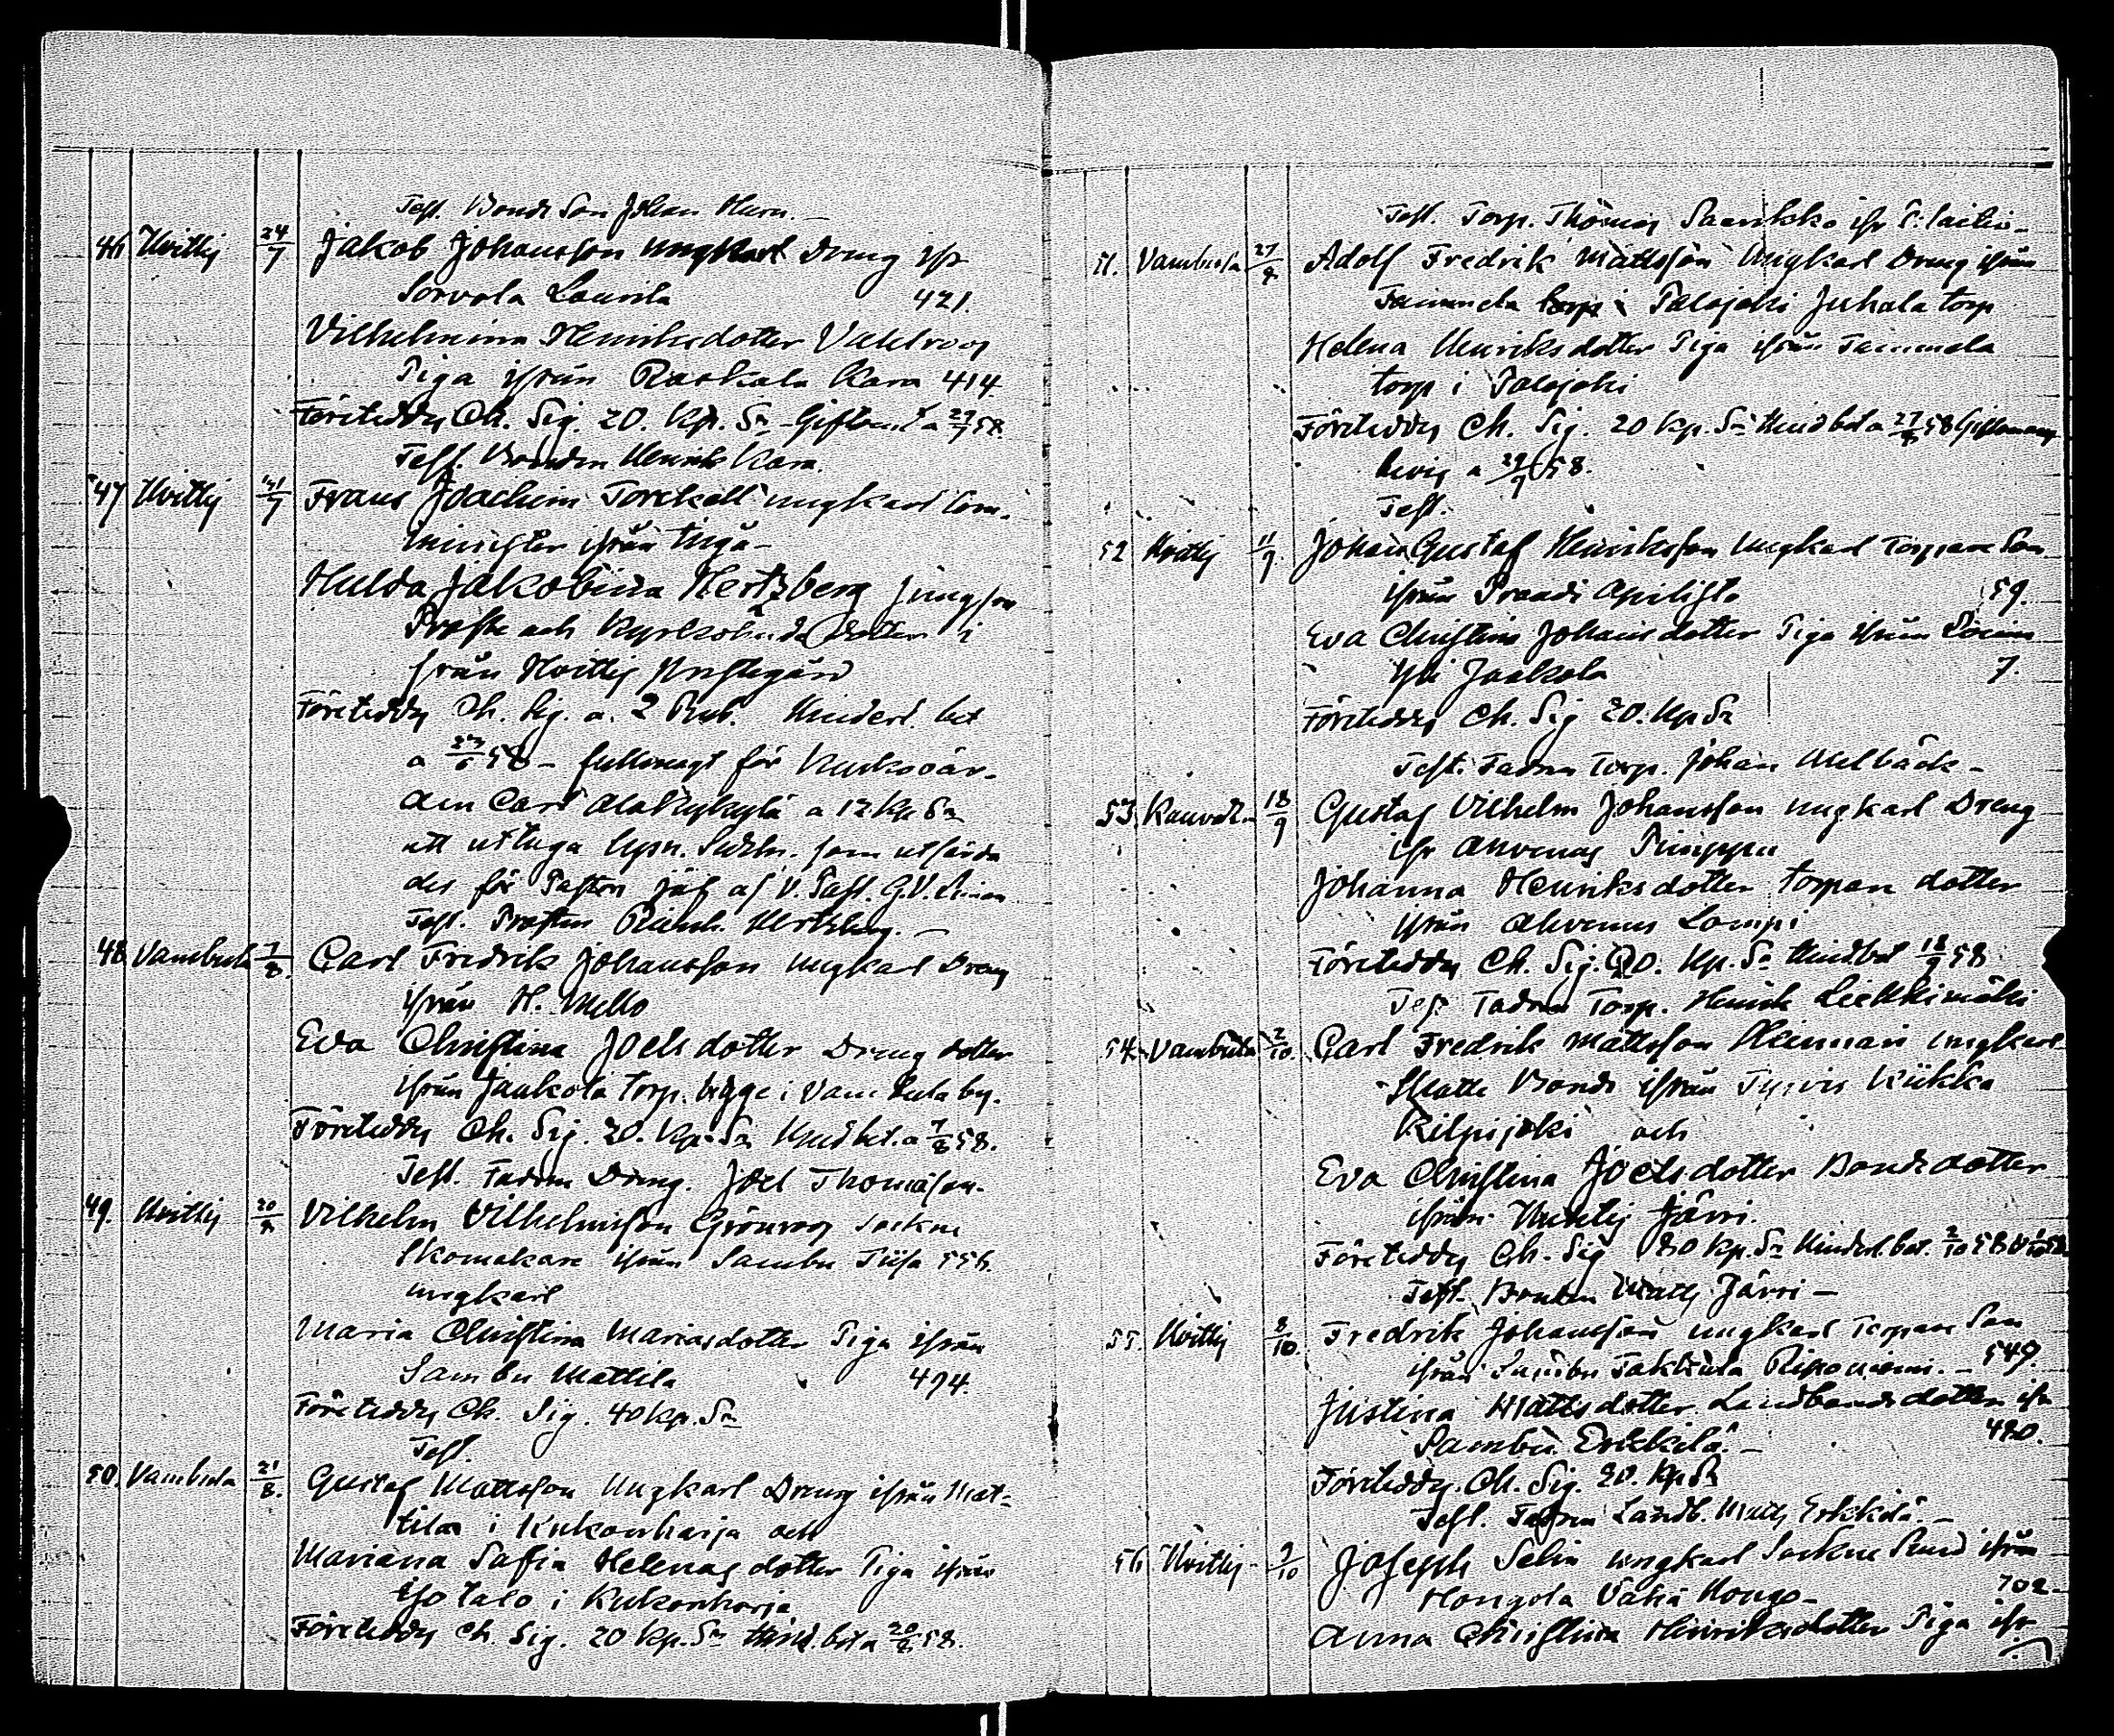 Test. Bonde Son Johan Hurn. —
46 Hvittis 24/7 Jakob Johansson ungkarl Dreng ifr
Sorvola Laurila 421.
Vilhelmina Henriksdotter Vahlroos
Piga ifrån Raskala Kara 414.
Företeddes Ch. Sig. 20. Kp. Sr
Test. Bonden Henrik Kara.
47 Hvittis 31/7 Frans Joachim Torckell ungkarl Com-
minister ifrån
Hulda Jakobina Hertzberg jungfru
Prost och Kyrkoherde dotter i
från Hvittis Prestegård
Företeddes Ch. Sig. a. 2 Rub. Hinderl. bet
a 58 – fullmagt för Kyrkovär-
den Carl Alakylä a 12 Kp Sr
att uttaga Lysn. Sedeln. som utfärda
des för Pastors jäf af V. Past. G.V.
Test. Prosten Reinh. Hertzberg. —
48 Vambula 7/8. Carl Fredrik Johansson ungkarl Dreng
ifrån H. Mello
Eva Christina Joelsdotter Dreng dotter
ifrån Jaakola torp. bygge i Vambula by.
Företeddes Ch. Sig. 20. Kp. Sr Hindbet. a 7/8 58.
Test. Fadren Dreng. Joel Thomasson.
49. Hvittis Vilhelm Vilhelmsson Grönroos Sockne
Skomakare ifrån Sambu Tiisa 556.
ungkarl
Maria Christina Mariasdotter Piga ifrån
Sambu Mattila 494.
Företeddes Ch. Sig. 40 Kp. Sr
Test.
50. Vambula 21/8. Gustaf Mattsson Ungkarl Dreng ifrån Mat-
tila i Kukonharja och
Mariana Sofia Helenasdotter Piga ifrån
Iso talo i Kukonharja
Företeddes Ch. Sig. 20 Kp. Sr Hind. bet a 58.
Test. Torp. Thomas Saarikko ifr
51. Vambula Adolf Fredrik Mattsson Ungkarl Dreng ifrån
Tammela torp i Palojoki Juhala torp
Helena Henriksdotter Piga ifrån Tammela
torp i Palojoki
Företeddes Ch. Sig. 20 Kp. Sr Hindbet a 27/8 58 Giftomans
bevis a 58.
Test.
52 Hvittis 11/9. Johan Gustaf Henriksson Ungkarl Torpare Son
ifrån 59.
Eva Christina Johansdotter Piga ifrån
Yli Jaakola 7.
Företeddes Ch. Sig 20. Kp Sr
Test. Fadren Torp. Johan Melbäck –
53. Kauvatsa 18/9 Gustaf Vilhelm Johansson ungkarl Dreng
ifr Ahvenus Pimppu
Johanna Henriksdotter torpare dotter
ifrån Ahvenus Lampi
Företeddes Ch. Sig. 20. Kp. Sr Hindbet 18/9 58
Test Fadren Torp. Henrik Liekkimäki
54. Vambula 2/10. Carl Fredrik Mattsson Heinari ungkarl
Skatte Bonde ifrån Tyrvis Kiikka
Kilpijoki och
Eva Christina Joelsdotter Bondedotter
ifrån Huhtis Järvi.
Företeddes Ch. Sig 20 Kp. Sr Hinderl. bet. 2/10 58
Test. Bonden Matts Järvi –
55. Hvittis 8/10. Fredrik Johansson ungkarl Torpare Son
ifrån Sambu 549.
Justina Mattsdotter Landbondedotter ifr
Sambu Erkkilä. – 480.
Företeddes. Ch. Sig. 20. Kp Sr
Test. Fadren Landb. Matts Erkkilä. –
56 Hvittis 9/10 Joseph Selin ungkarl Sockne ifrån
Hongola Vähä Hongo – 702.
Anna Christina Henriksdotter Piga ifr